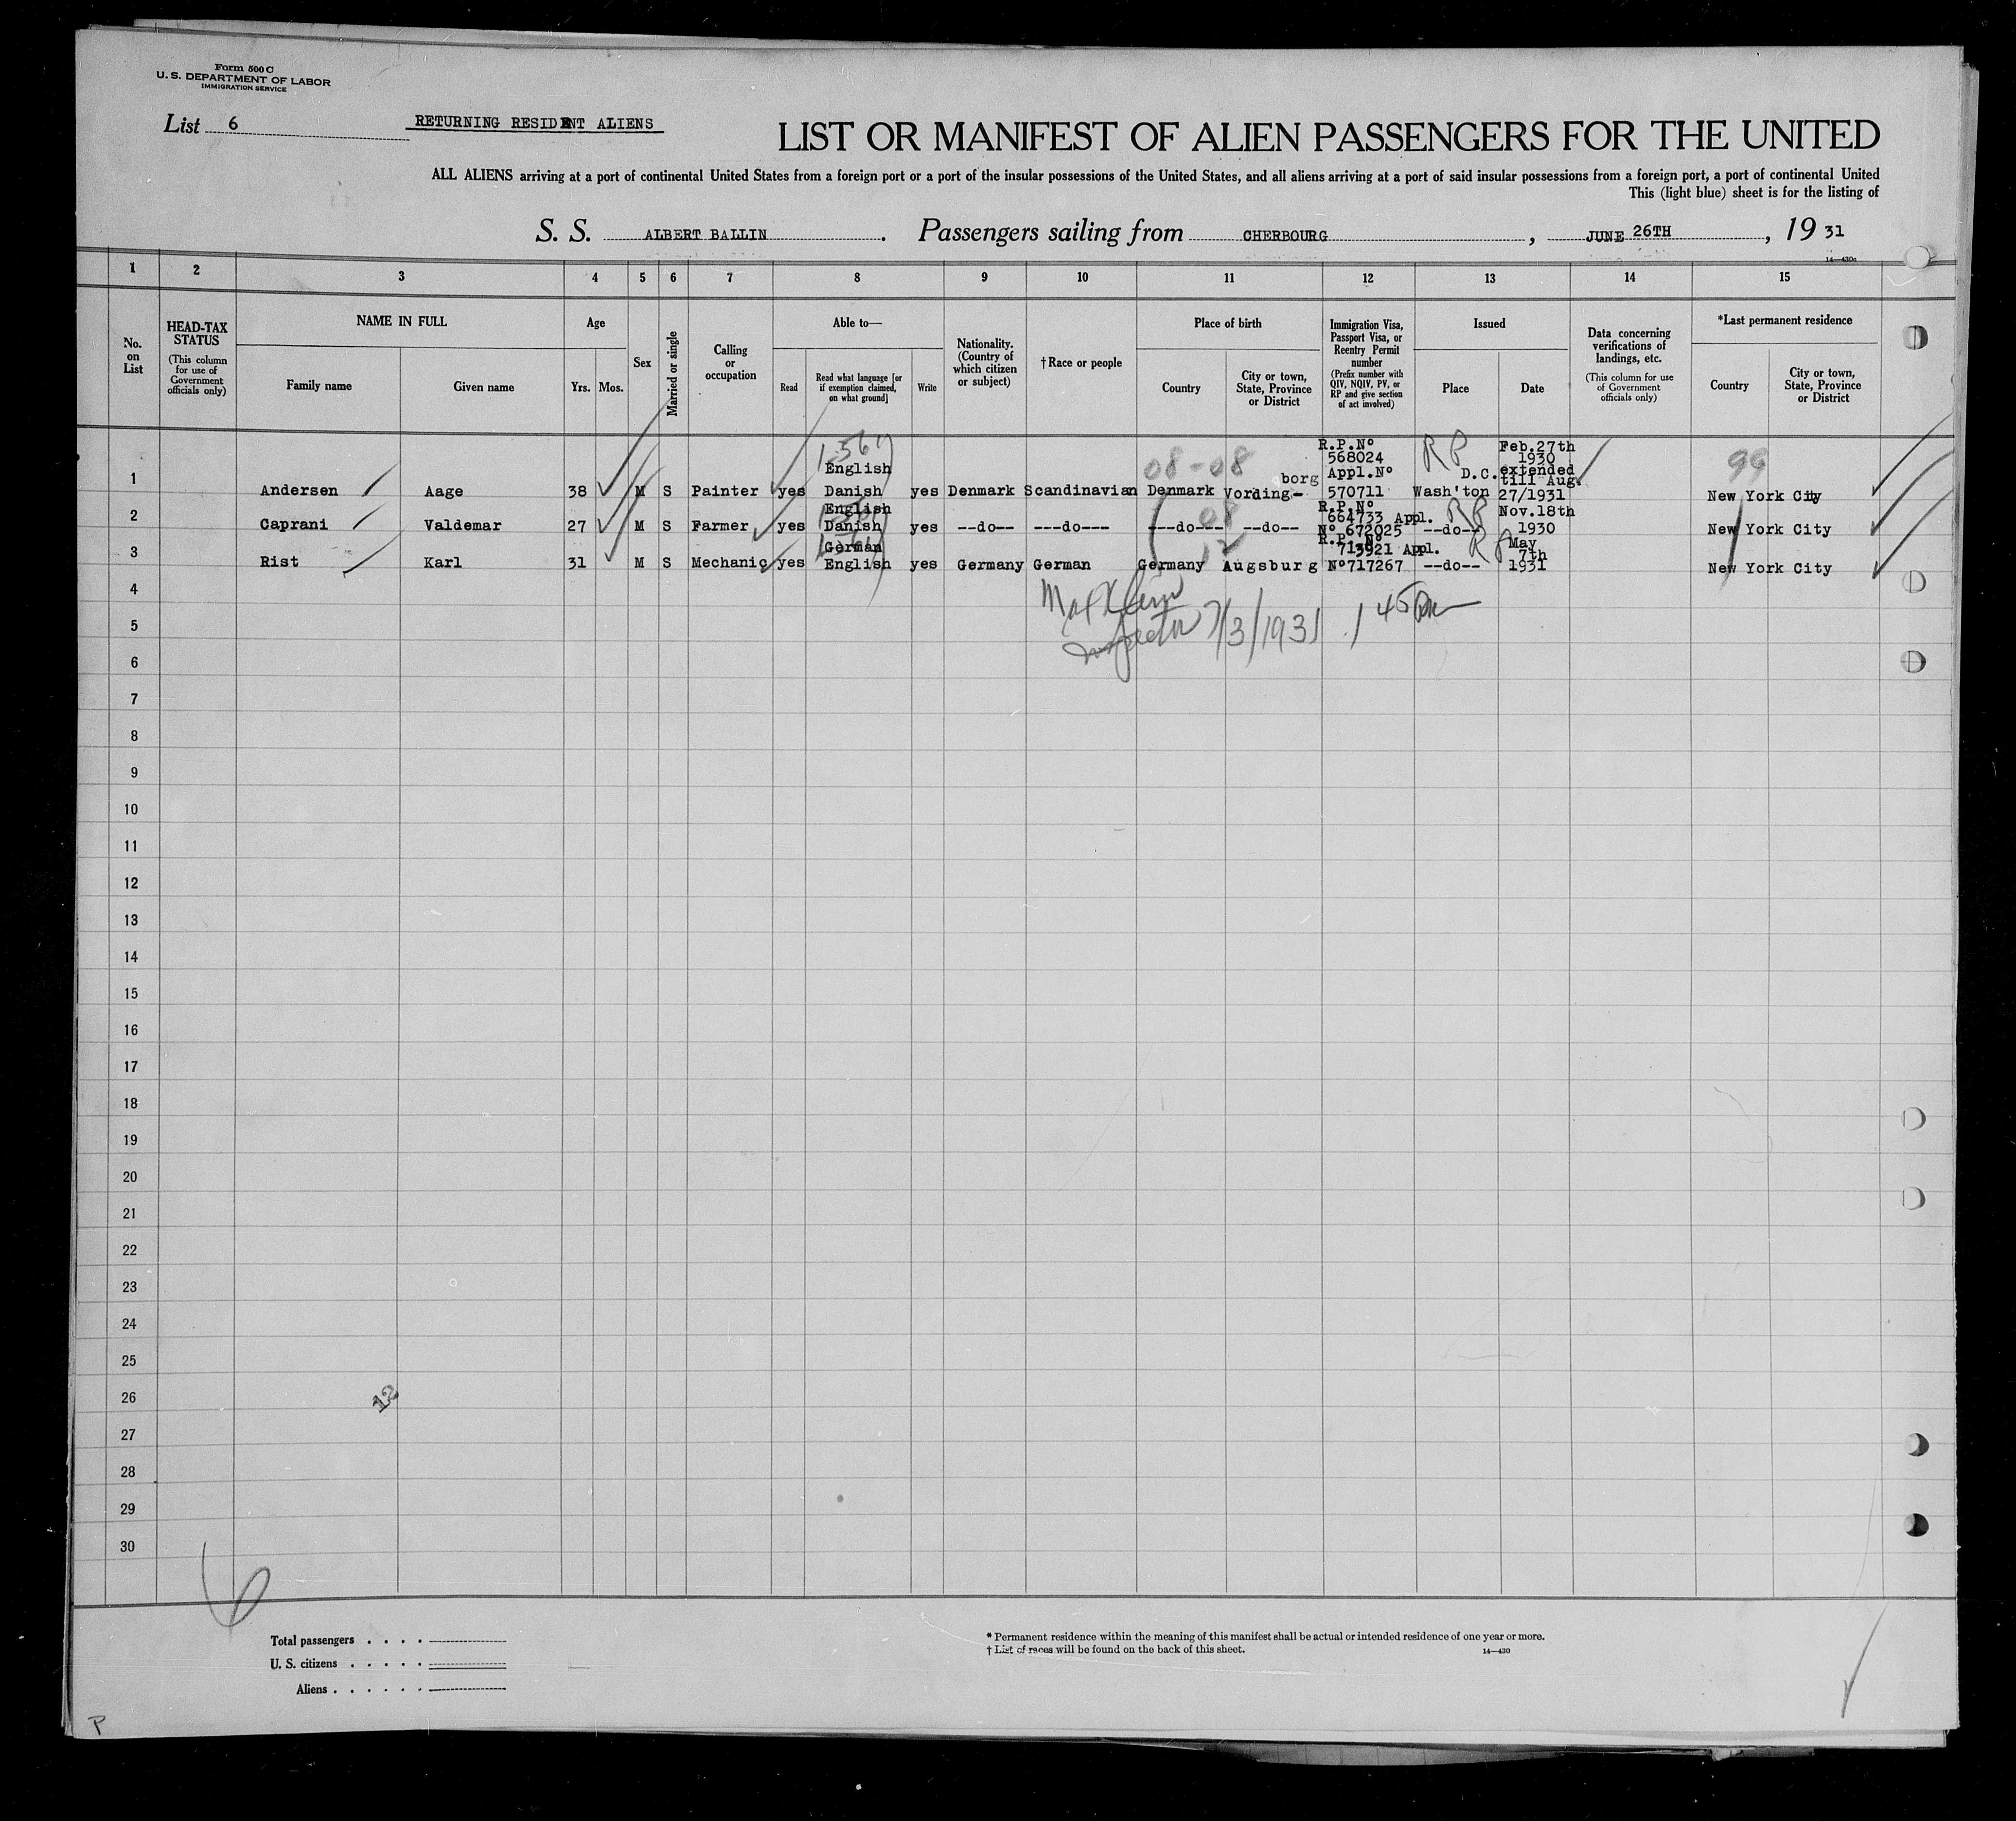 Form 500 C
U. S. DEPARTMENT OF LABOR
IMMIGRATION SERVICE
List 6
RETURNING RESIDENT ALIENS
LIST OR MANIFEST OF ALIEN PASSENGERS FOR THE UNITED
ALL ALIENS arriving at a port of continental United States from a foreign port or a port of the insular possessions of the United States, and all aliens arriving at a port of said insular possessions from a foreign port, a port of continental United
This (light blue) sheet is for the listing of
S. S. ALBERT BALLIN. Passengers sailing from CHERBOURG, JUNE 26TH, 19 31
14—430c
1 2 3 4 5 6 7 8 9 10 11 12 13 14 15
No. on List
HEAD-TAX STATUS
(This column for use of Government officials only)
NAME IN FULL
Family name
Given name
Age
Yrs. Mos.
Sex
Married or single
Calling or occupation
Able to—
Read
Read what language [or if exemption claimed, on what ground]
Write
Nationality. (Country of which citizen or subject)
†Race or people
Place of birth
Country
City or town, State, Province or District
Immigration Visa, Passport Visa, or Reentry Permit number
(Prefix number with QIV, NQIV, PV, or RP and give section of act involved)
Issued
Place
Date
Data concerning verifications of landings, etc.
(This column for use of Government officials only)
*Last permanent residence
Country
City or town, State, Province or District
08-08
RP
99
1 Andersen Aage 38 M S Painter yes English Danish yes Denmark Scandinavian Denmark Vording-borg R.P.Nº 568024 Appl.Nº 570711 Wash'ton D.C. Feb.27th 1930 extended till Aug. 27/1931 New York City
08
RP
2 Caprani Valdemar 27 M S Farmer yes English Danish yes --do-- ---do--- ---do--- --do-- R.P.Nº 664733 Appl. Nº 672025 --do-- Nov.18th 1930 New York City
12
RP
3 Rist Karl 31 M S Mechanic yes German English yes Germany German Germany Augsburg R.P. Nº 713921 Appl. Nº717267 --do-- May 7th 1931 New York City
Max Klein
Inspector 7/3/1931 1 45 Pm
4
5
6
7
8
9
10
11
12
13
14
15
16
17
18
19
20
21
22
23
24
25
26
12
27
28
29
30
6
Total passengers . . . .
U. S. citizens . . . . .
Aliens . . . . . .
* Permanent residence within the meaning of this manifest shall be actual or intended residence of one year or more.
† List of races will be found on the back of this sheet.
14—430
P